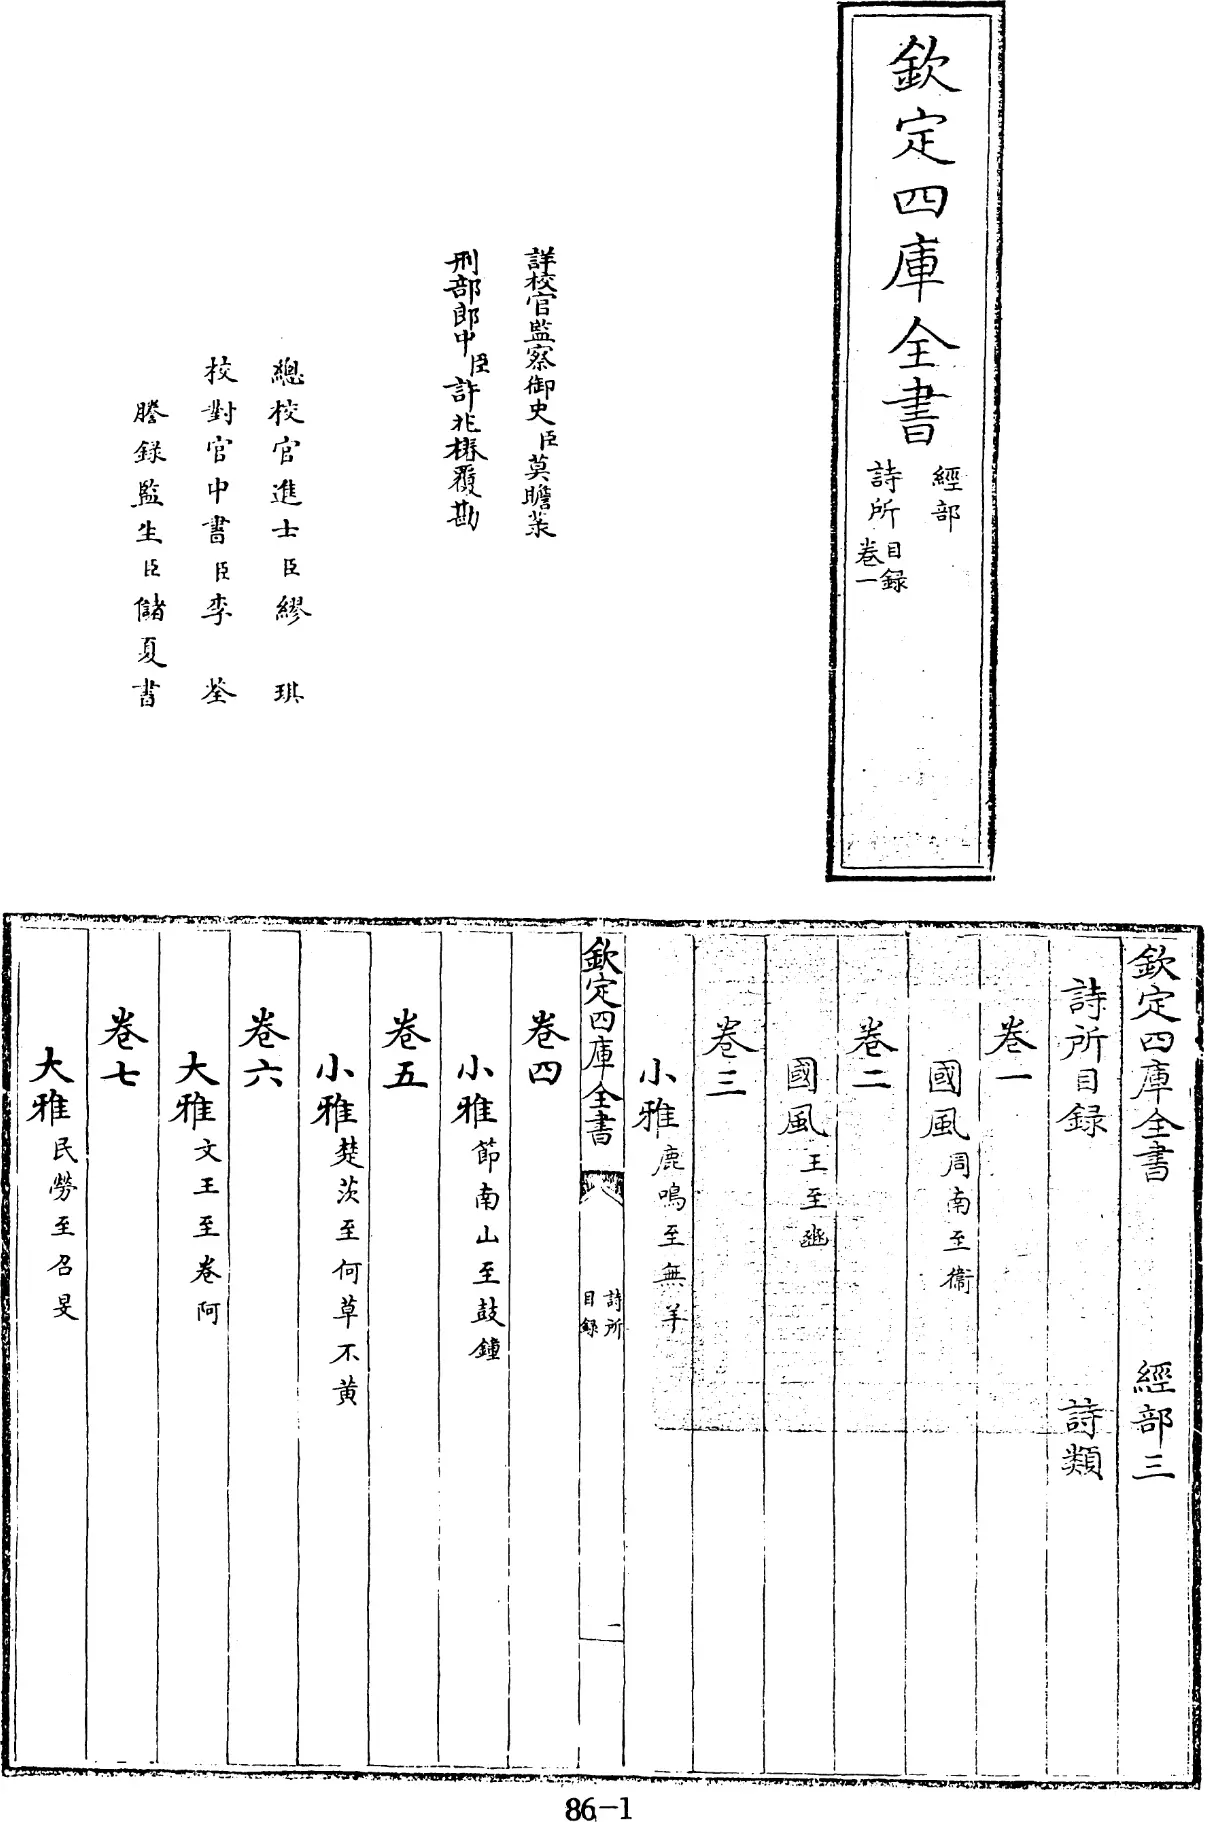 欽定四庫全書
經部
詩所
目録
卷一
詳校官監察御史臣莫瞻菉
刑部郎中臣許兆椿覆勘
總校官進士臣繆琪
校對官中書臣李荃
謄錄監生臣儲夏書
欽定四庫全書 經部三
詩所目録 詩類
卷一
國風周南至衛
卷二
國風王至豳
卷三
小雅鹿鳴至無羊
欽定四庫全書
詩所
目録
一
卷四
小雅節南山至鼓鐘
卷五
小雅楚茨至何草不黄
卷六
大雅文王至卷阿
卷七
大雅民勞至召旻
86-1